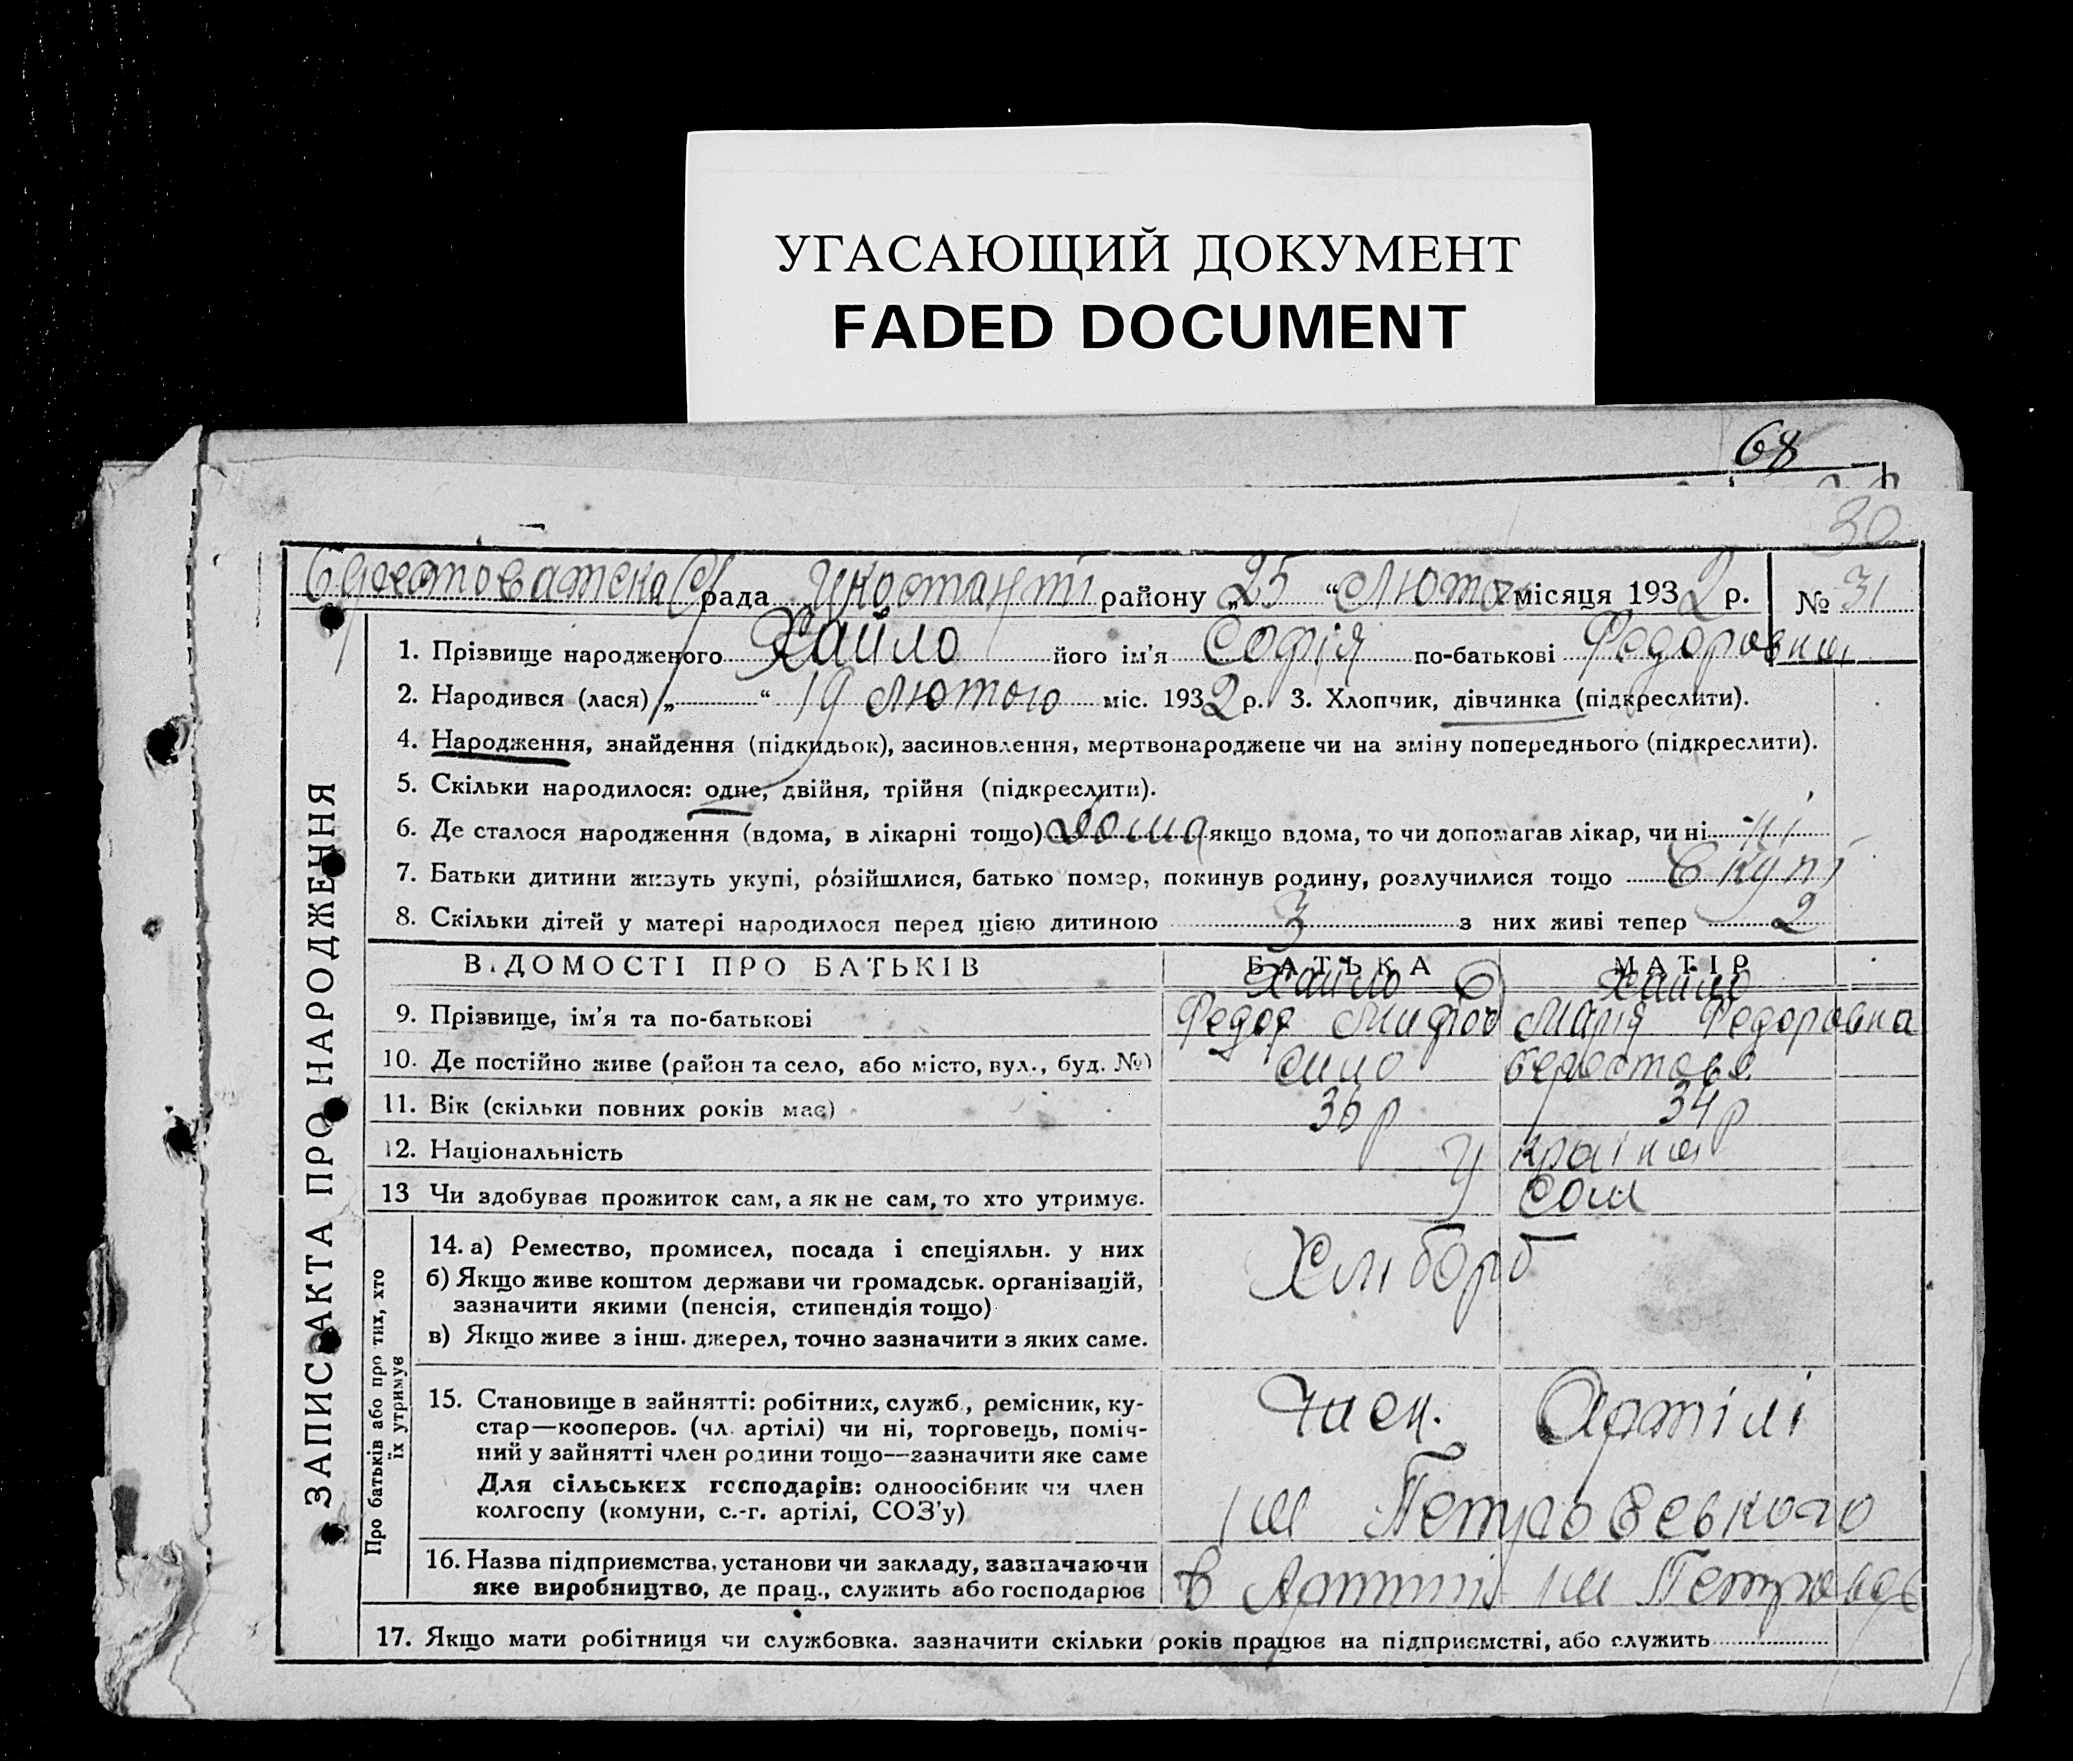 УГАСАЮЩИЙ ДОКУМЕНТ
FADED DOCUMENT
68
30
рада району „25“ Люто місяця 1932 р. № 31
1. Прізвище народженого Хайло його ім'я Софія по-батькові Федоровна
2. Народився (лася) „ “ 19 Лютого міс. 1932 р. 3. Хлопчик, дівчинка (підкреслити).
4. Народження, знайдення (підкидьок), засиновлення, мертвонароджене чи на зміну попереднього (підкреслити).
5. Скільки народилося: одне, двійня, трійня (підкреслити).
6. Де сталося народження (вдома, в лікарні тощо) Дома якщо вдома, то чи допомагав лікар, чи ні ні
7. Батьки дитини живуть укупі, розійшлися, батько помер, покинув родину, розлучилися тощо вкупі
8. Скільки дітей у матері народилося перед цією дитиною 3 з них живі тепер 2
ВІДОМОСТІ ПРО БАТЬКІВ БАТЬКА МАТІР
Хайло Хайло
9. Прізвище, ім'я та по-батькові Федор Марія Федоровна
10. Де постійно живе (район та село, або місто, вул., буд. №)
11. Вік (скільки повних років має) 36 р 34 р
12. Національність Україн
13 Чи здобуває прожиток сам, а як не сам, то хто утримує. сам
14. а) Ремество, промисел, посада і спеціяльн. у них Хлібороб
б) Якщо живе коштом держави чи громадськ. організацій,
зазначити якими (пенсія, стипендія тощо)
в) Якщо живе з інш. джерел, точно зазначити з яких саме.
15. Становище в зайнятті: робітник, служб., ремісник, ку-
стар—кооперов. (чл. артілі) чи ні, торговець, поміч- Артілі
ний у зайнятті член родини тощо—зазначити яке саме
Для сільських господарів: одноосібник чи член
колгоспу (комуни, с.-г. артілі, СОЗ'у) ім Петровського
16. Назва підприємства, установи чи закладу, зазначаючи
яке виробництво, де прац., служить або господарює в ім
17. Якщо мати робітниця чи службовка. зазначити скільки років працює на підприємстві, або служить
ЗАПИС АКТА ПРО НАРОДЖЕННЯ
Про батьків або про тих, хто
їх утримує